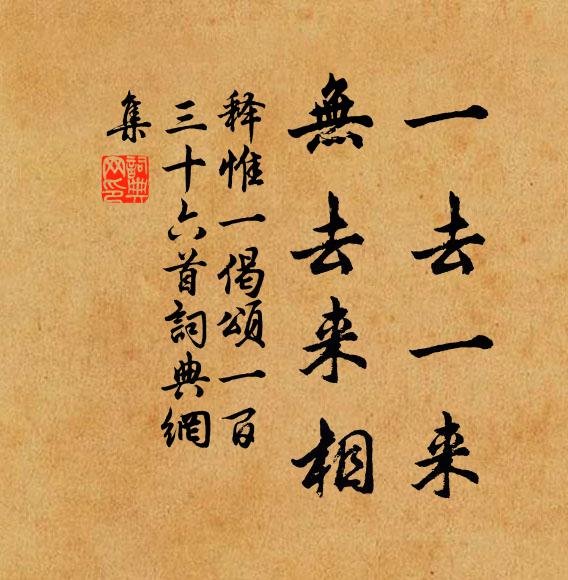 一去一来
無去来相
释惟一偈頌一百
三十六首詞典網
集
詞典
网印